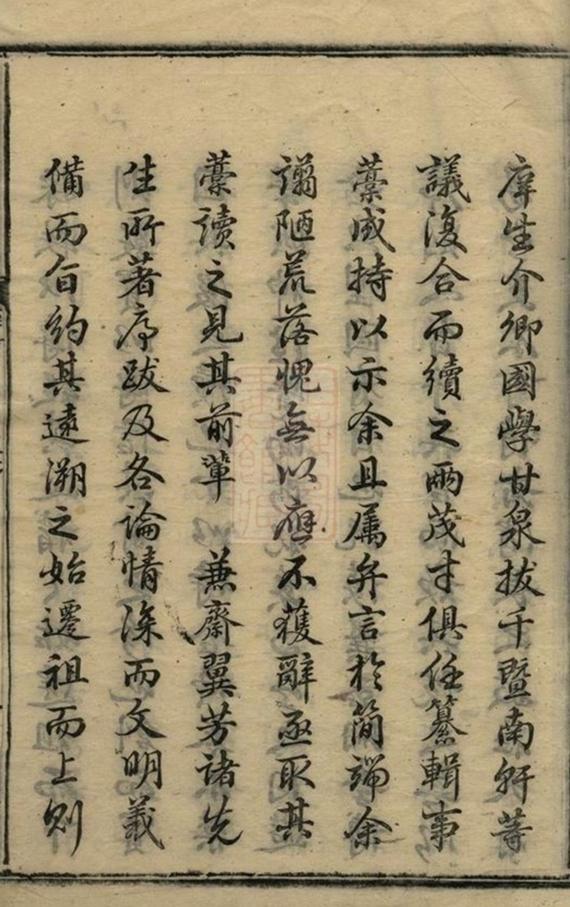 庠生介卿國學甘泉拔千暨南軒等
議復合而續之兩茂才俱任纂輯事
藁成持以示余且属弁言於簡端余
譾陋荒落愧無以應不獲辭亟取其
藁讀之見其前輩 兼齋翼芳諸先
生所著序跋及各論情深而文明義
備而旨約其遠溯之始遷祖而上則